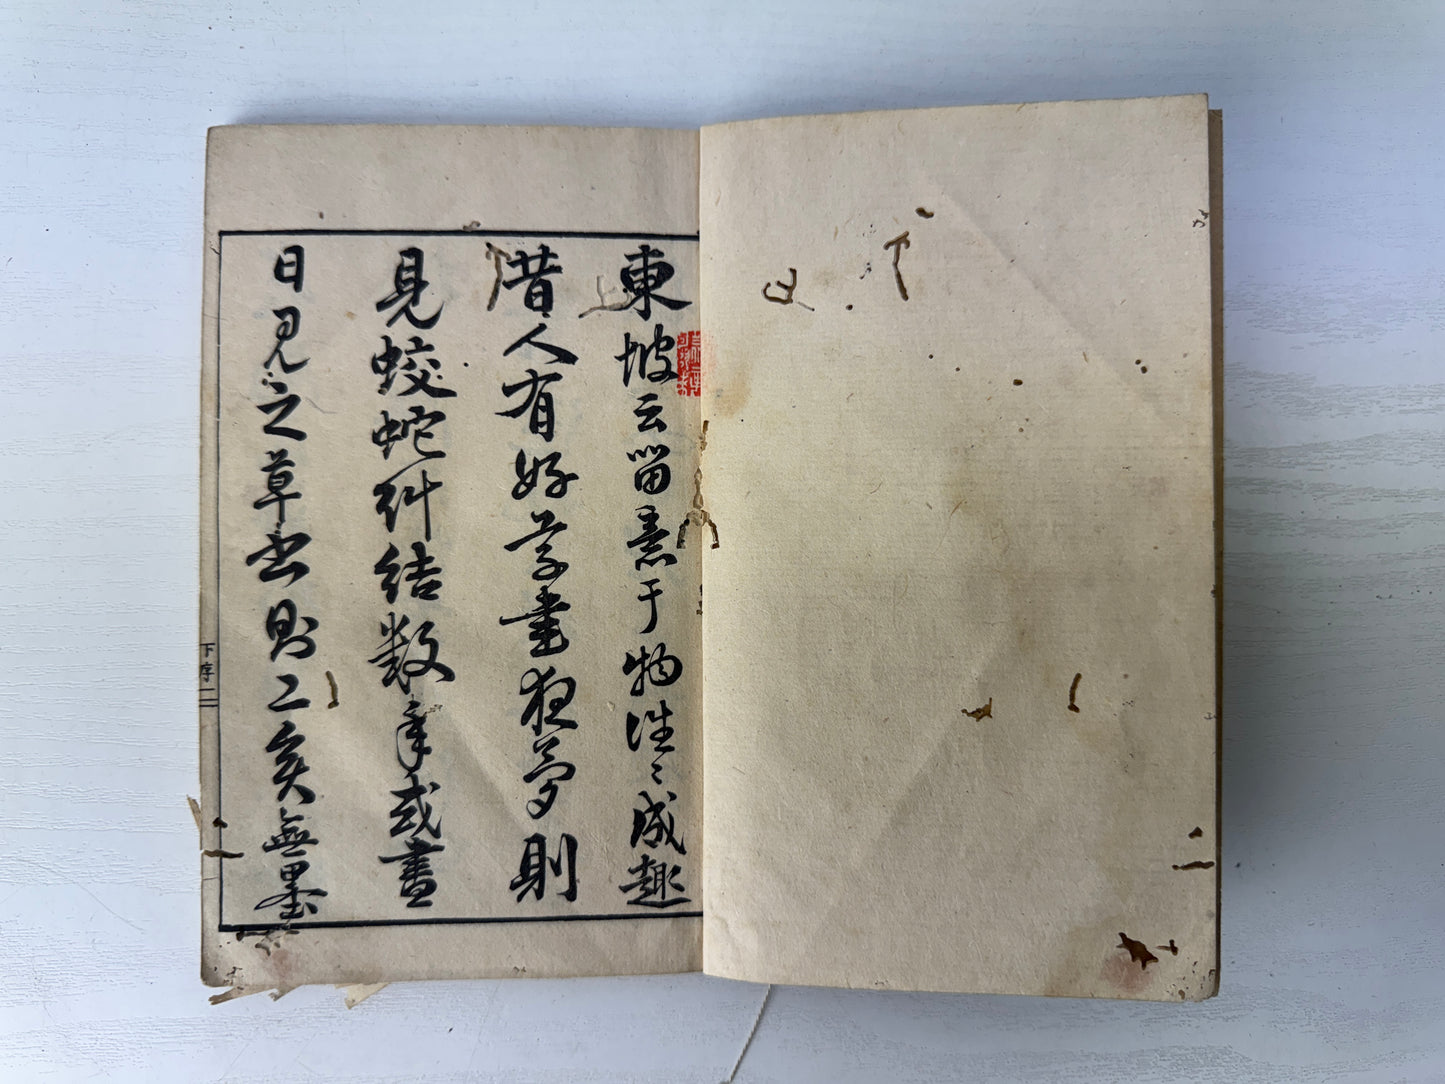 東坡云留意于物往々成趣
昔人有好草書夜夢則
見蛟蛇糾結數年或晝
日見之草書則工矣無墨
下序一